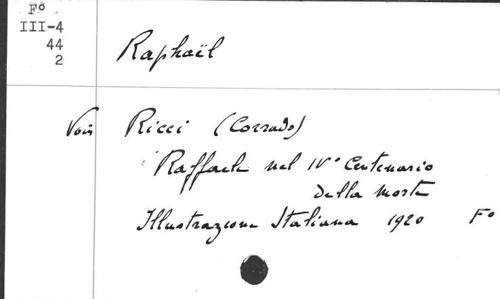 Fº
III-4
44
2
Raphaël
Voir Ricci (Corrado)
Raffaele nel IVº Centenario
della morte
Illustrazione Italiana 1920 Fº